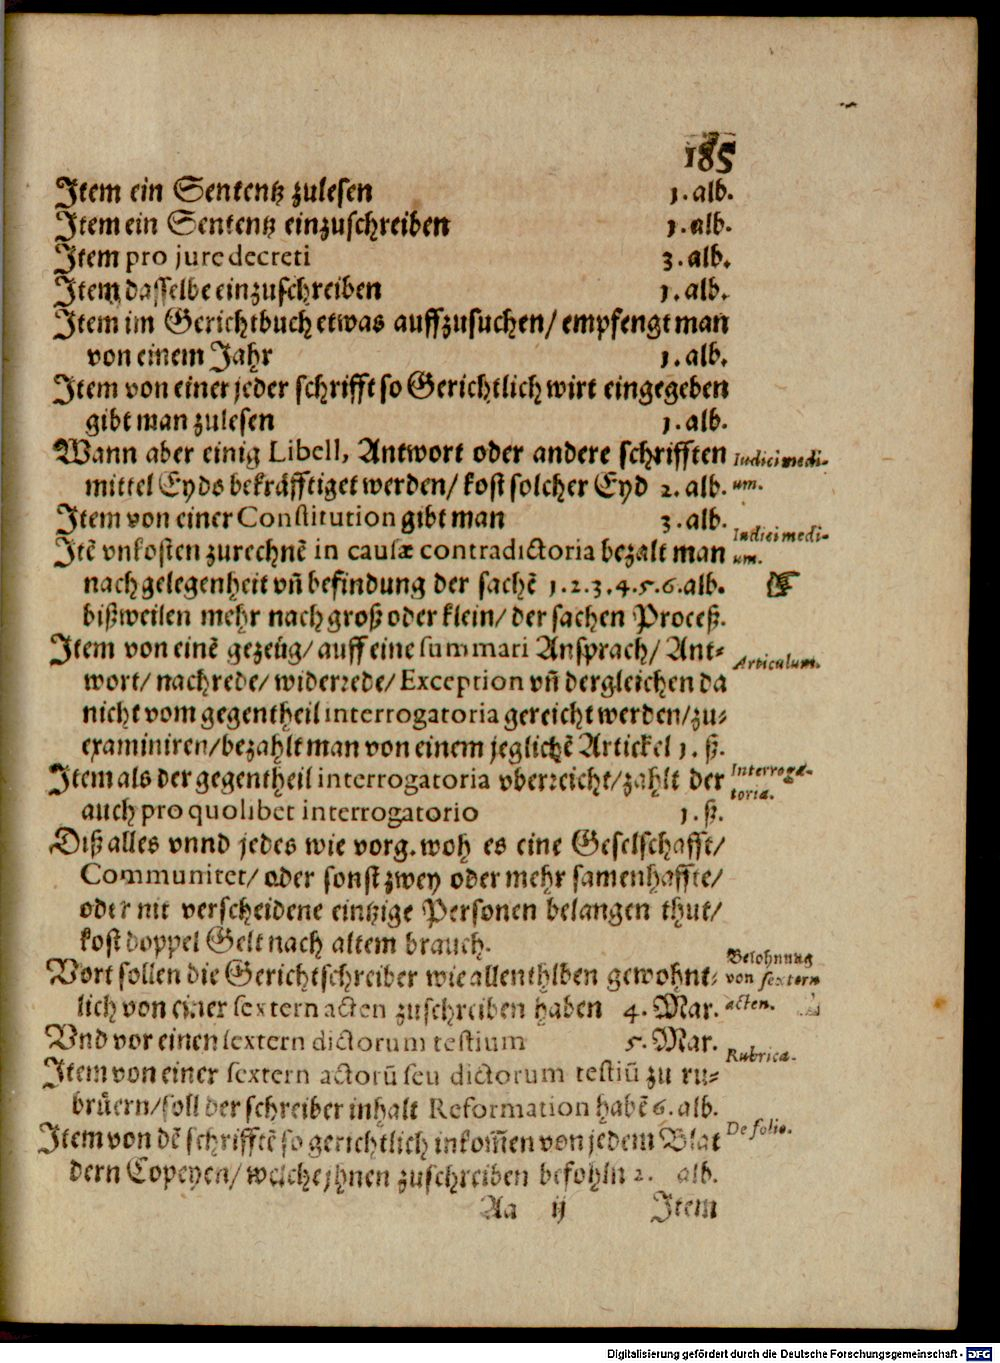 185
Item ein Sententz zulesen 1. alb.
Item ein Sententz einzuschreiben 1. alb.
Item pro jure decreti 3. alb.
Item dasselbe einzuschreiben 1. alb.
Item im Gerichtbuch etwas auffzusuchen/ empfengt man
von einem Jahr 1. alb.
Item von einer jeder schrifft so Gerichtlich wirt eingegeben
gibt man zulesen 1. alb.
Wann aber einig Libell, Antwort oder andere schrifften
Iudici medi-
mittel Eyds bekräfftiget werden/ kost solcher Eyd 2. alb.
um.
Item von einer Constitution gibt man 3. alb.
Iudici medi-
Itē vnkosten zurechnē in causæ contradictoria bezalt man
um.
nach gelegenheit vñ befindung der sachē 1. 2. 3. 4. 5. 6. alb.
☞
bißweilen mehr nach groß oder klein/ der sachen Proceß.
Item von einē gezeüg/ auff eine summari Ansprach/ Ant-
Articulum.
wort/ nachrede/ widerrede/ Exception vñ dergleichen da
nicht vom gegentheil interrogatoria gereicht werden/ zu-
examiniren/ bezahlt man von einem jeglichē Artickel 1. ß.
Item als der gegentheil interrogatoria vberreicht/ zahlt der
Interroga-
toria.
auch pro quolibet interrogatorio 1. ß.
Diß alles vnnd jedes wie vorg. woh es eine Geselschafft/
Communitet/ oder sonst zwey oder mehr samenhaffte/
oder nit verscheidene eintzige Personen belangen thut/
kost doppel Gelt nach altem brauch.
Belohnung
Vort sollen die Gerichtschreiber wie allenthlben gewohnt-
von sextern
lich von einer sextern acten zuschreiben haben 4. Mar.
acten.
Vnd vor einen sextern dictorum testium 5. Mar.
Rubrica.
Item von einer sextern actorū seu dictorum testiū zu ru-
brüern/ soll der schreiber inhalt Reformation habē 6. alb.
Item von dē schrifftē so gerichtlich inkom̄en von jedem Blat
De folio.
dern Copeyen/ welche jhnen zuschreiben befohln 2. alb.
Aa ij Item
Digitalisierung gefördert durch die Deutsche Forschungsgemeinschaft - DFG